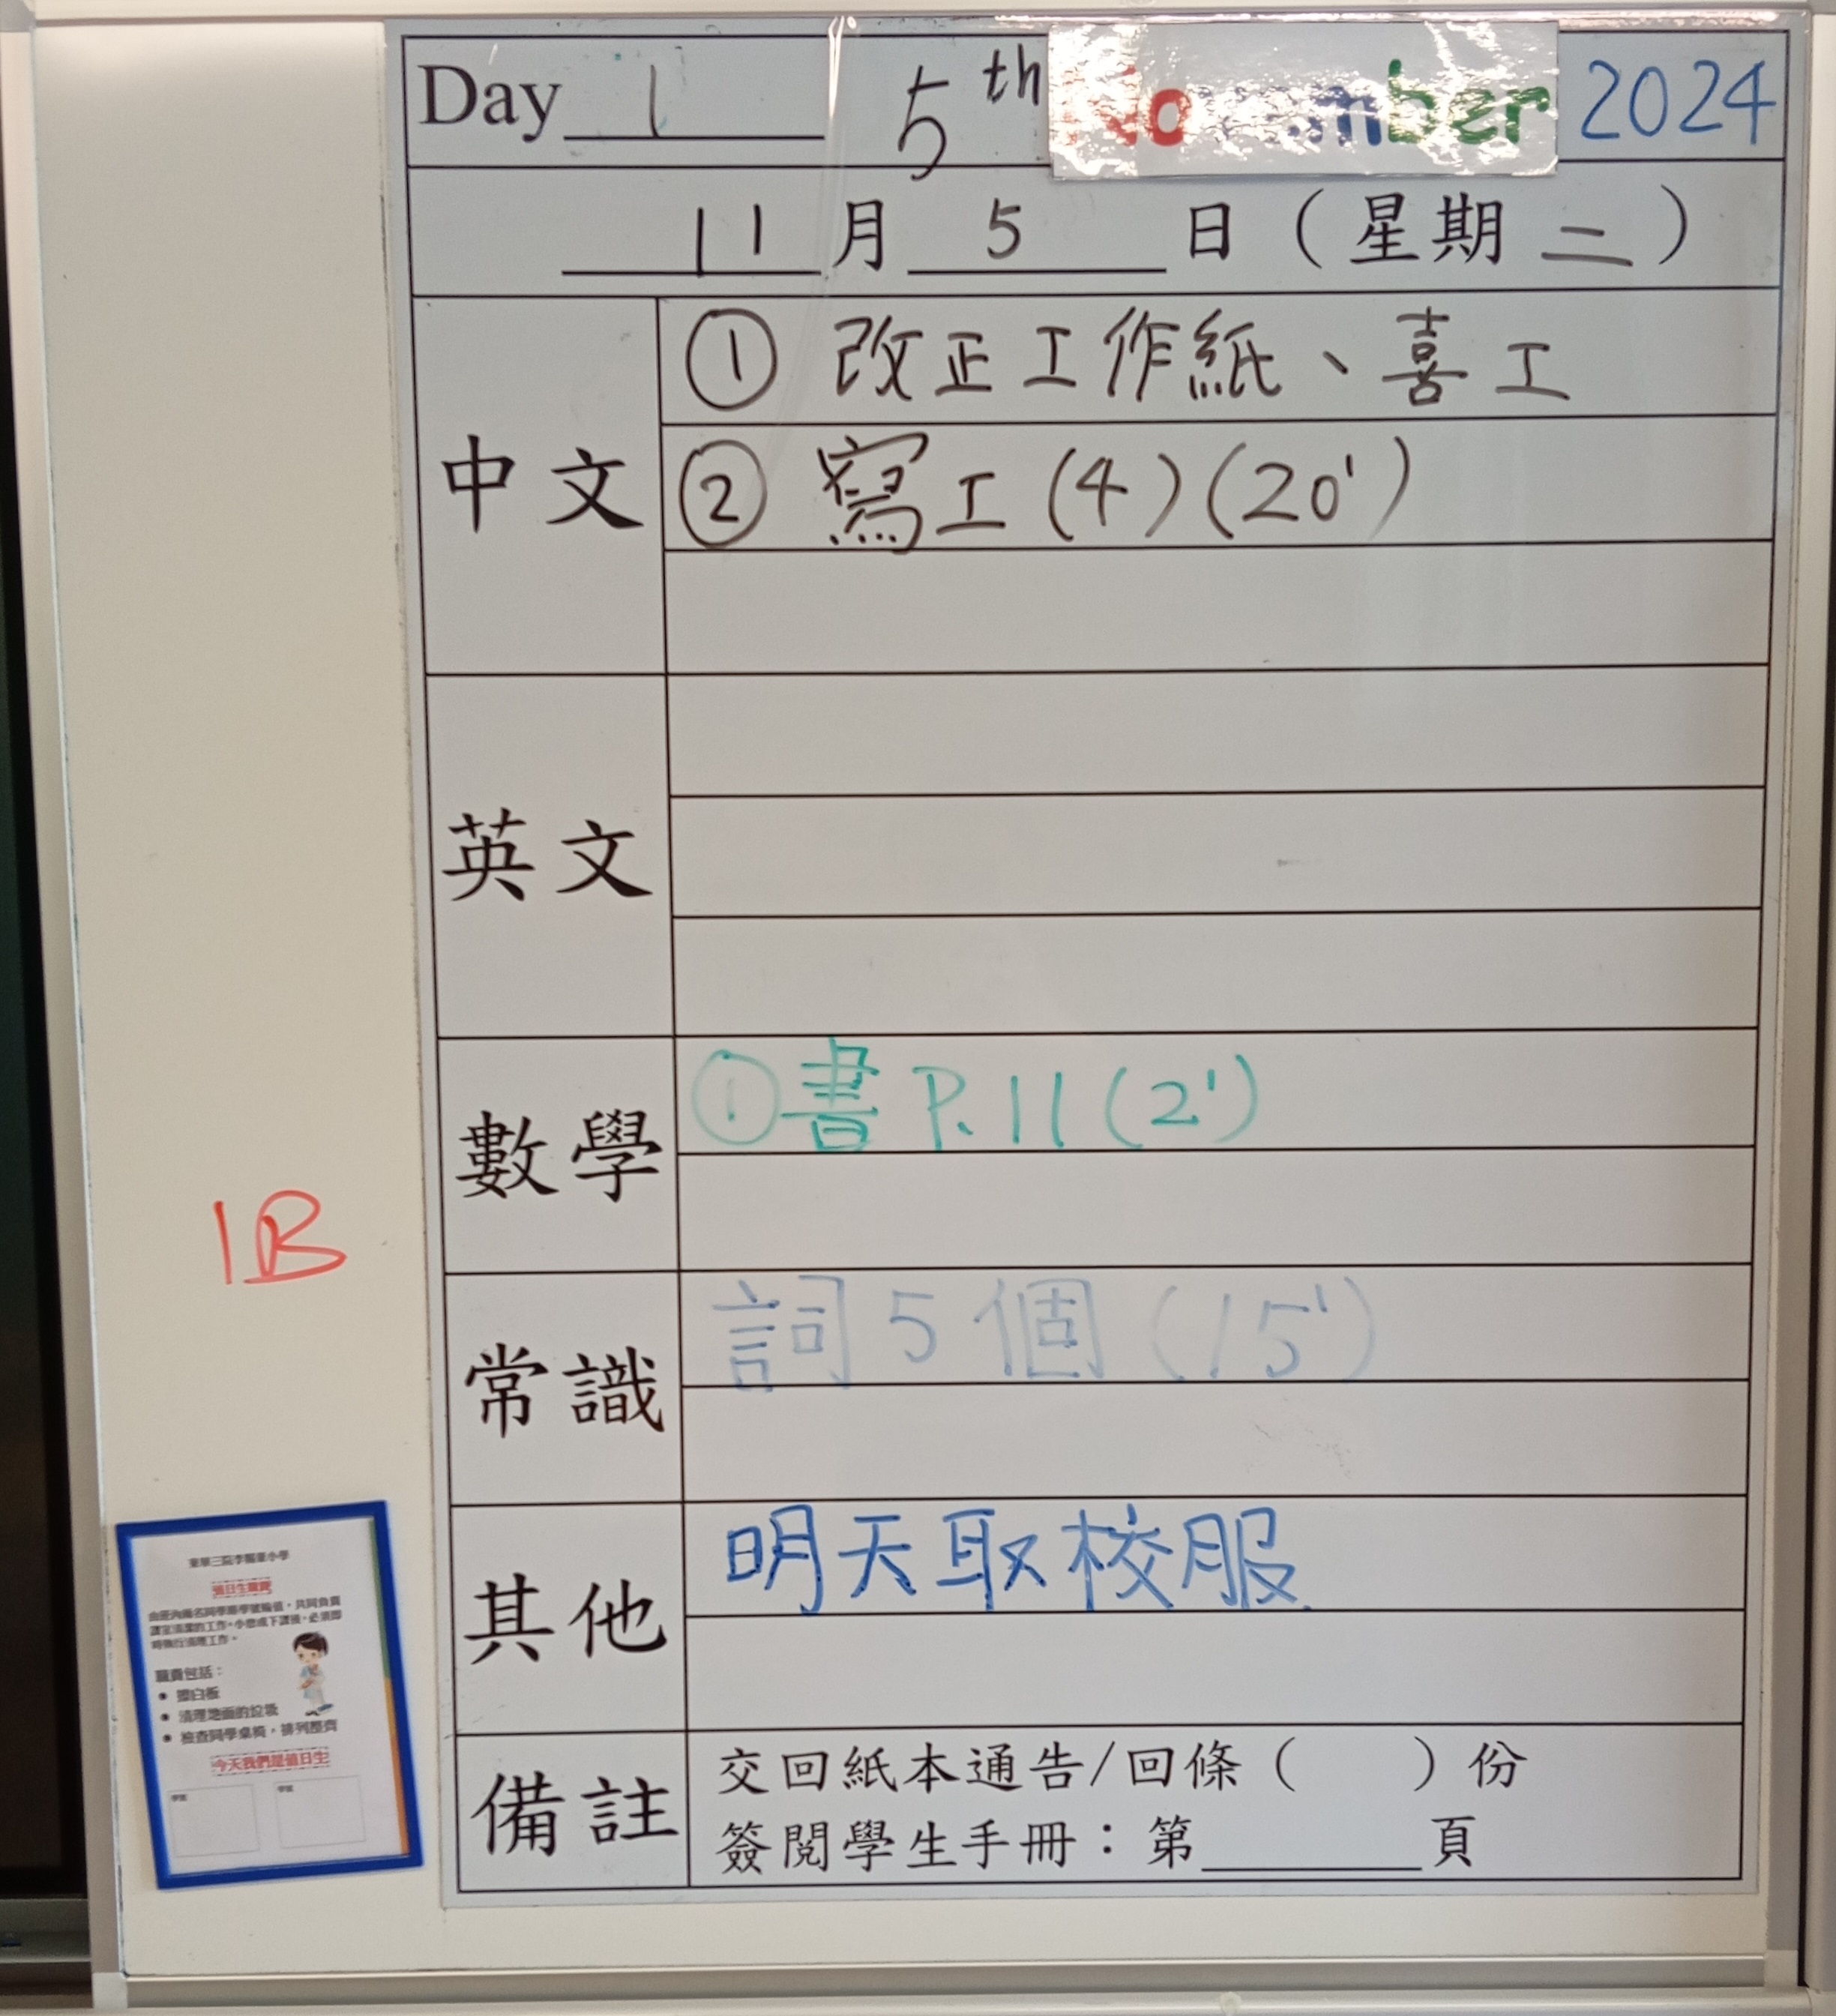 Day 1 5th November 2024
11月5日（星期二）
中文
① 改正工作紙、喜工
② 寫工(4)(20')
英文
數學
①書 P.11(2')
常識
詞5個(15')
其他
明天取校服
備註
交回紙本通告/回條（　　）份
簽閱學生手冊：第______頁
1B
值日生職責
職責包括：
• 擦白板
• 清理地面的垃圾
• 檢查同學桌椅，排列整齊
今天我們是值日生
學號
學號